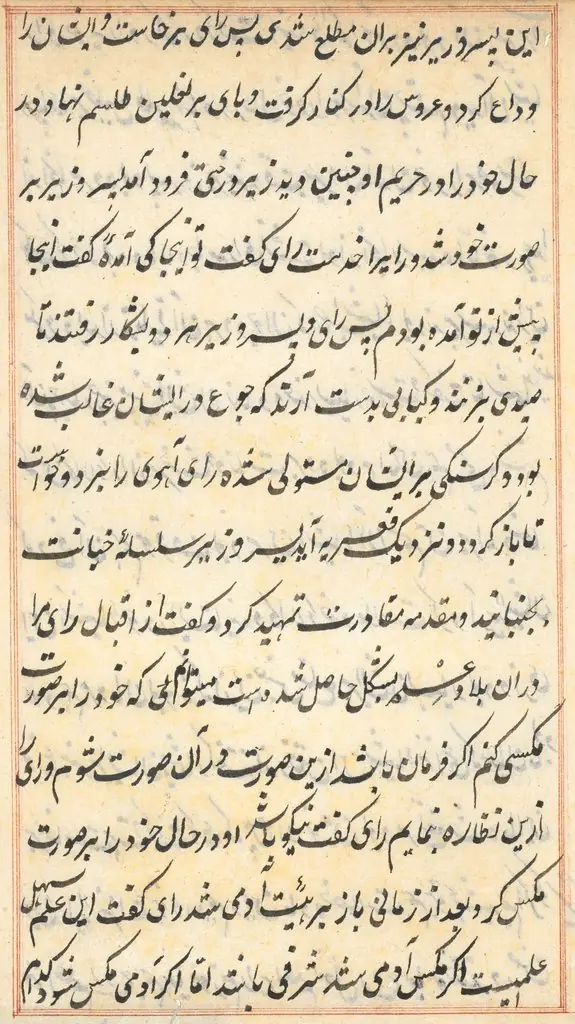 این پسر وزیر نیز بران مطلع شدی پس رای برخاست و ایشان را
وداع کرد و عروس را در کنار گرفت و پای بر نعلین طلسم نهاد و در
حال خود را در حریم او چنین دید زیر درختی فرود آمد پسر وزیر بر
صورت خود شد و رای را خدمت رای گفت تو اینجا کی آمدهٔ گفت اینجا
پیش از تو آمده بودم پس رای و پسر وزیر هر دو بشکار رفتند تا
صیدی بزنند و کبابی بدست آرند که جوع در ایشان غالب شده
بود و گرسنگی بر ایشان مستولی شده رای آهوی را بزد و خواست
تا باز گردد و نزدیک آید پسر وزیر سلسلهٔ خیانت
بجنبانید و مقدمه تمهید کرد و گفت از اقبال رای مرا
دران بلاد علم مشکل حاصل شده است میتوانم که خود را بر صورت
مگسی کنم اگر فرمان باشد ازین صورت در آن صورت شوم و رای را
ازین نظاره نمایم رای گفت نیکو باشد او در حال خود را بر صورت
مگس کرد و بعد از زمانی باز بر هیئت آدمی شد رای گفت این علم سهل
علمیست اگر مگس آدمی شد شرفی باشد اما اگر آدمی مگس شود کدام